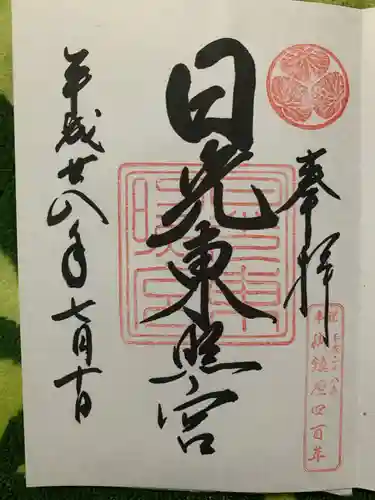 奉拝
日光東照宮
平成廿八年七月十日
御鎮座四百年